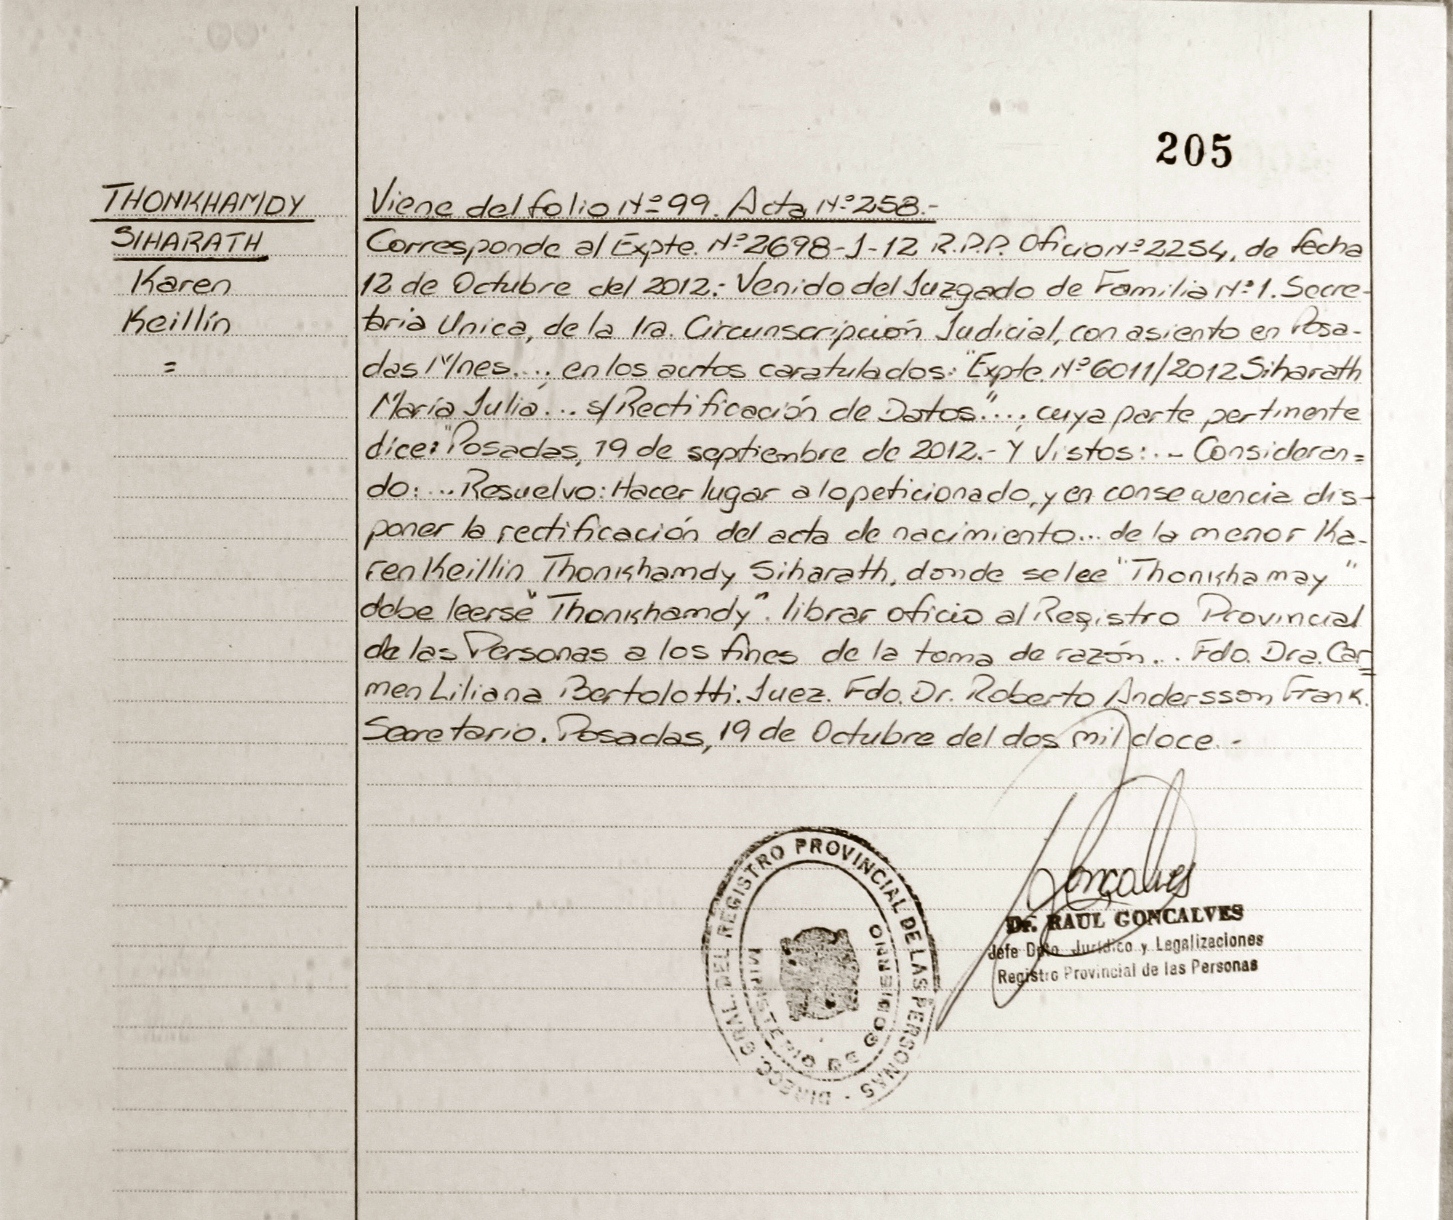 205
THONKHAMDY
SIHARATH
Karen
Keillín
=
Viene del folio Nº 99. Acta Nº 258.-
Corresponde al Expte. Nº 2698-J-12 R.P.P. Oficio Nº 2254, de fecha
12 de Octubre del 2012.- Venido del Juzgado de Familia Nº 1. Secre-
taria Unica, de la 1ra. Circunscripción Judicial, con asiento en Posa-
das Mnes...., en los autos caratulados: "Expte. Nº 6011/2012 Siharath
María Julia... s/Rectificación de Datos"..., cuya parte pertinente
dice: "Posadas, 19 de septiembre de 2012.- Y Vistos:.- Consideran=
do:... Resuelvo: Hacer lugar a lo peticionado, y en consecuencia dis-
poner la rectificación del acta de nacimiento... de la menor Ka-
ren Keillin Thonkhamdy Siharath, donde se lee "Thonkhamay"
debe leerse "Thonkhamdy". librar oficio al Registro Provincial
de las Personas a los fines de la toma de razón... Fdo. Dra. Car=
men Liliana Bertolotti. Juez. Fdo. Dr. Roberto Andersson Frank.
Secretario. Posadas, 19 de Octubre del dos mil doce.-
DIRECC. GRAL. DEL REGISTRO PROVINCIAL DE LAS PERSONAS -
MINISTERIO DE GOBIERNO
Goncalves
Dr. RAUL GONCALVES
Jefe Dpto. Jurídico y Legalizaciones
Registro Provincial de las Personas